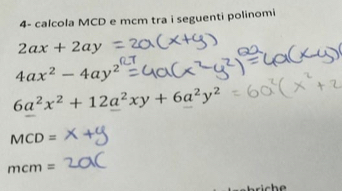 4- calcola MCD e mcm tra i seguenti polinomi
2ax + 2ay = 2a(x+y)
4ax² − 4ay² = 4a(x²-y²) = 4a(x-y)(
6a²x² + 12a²xy + 6a²y² = 6a²(x²+2
MCD = x+y
mcm = 2a(